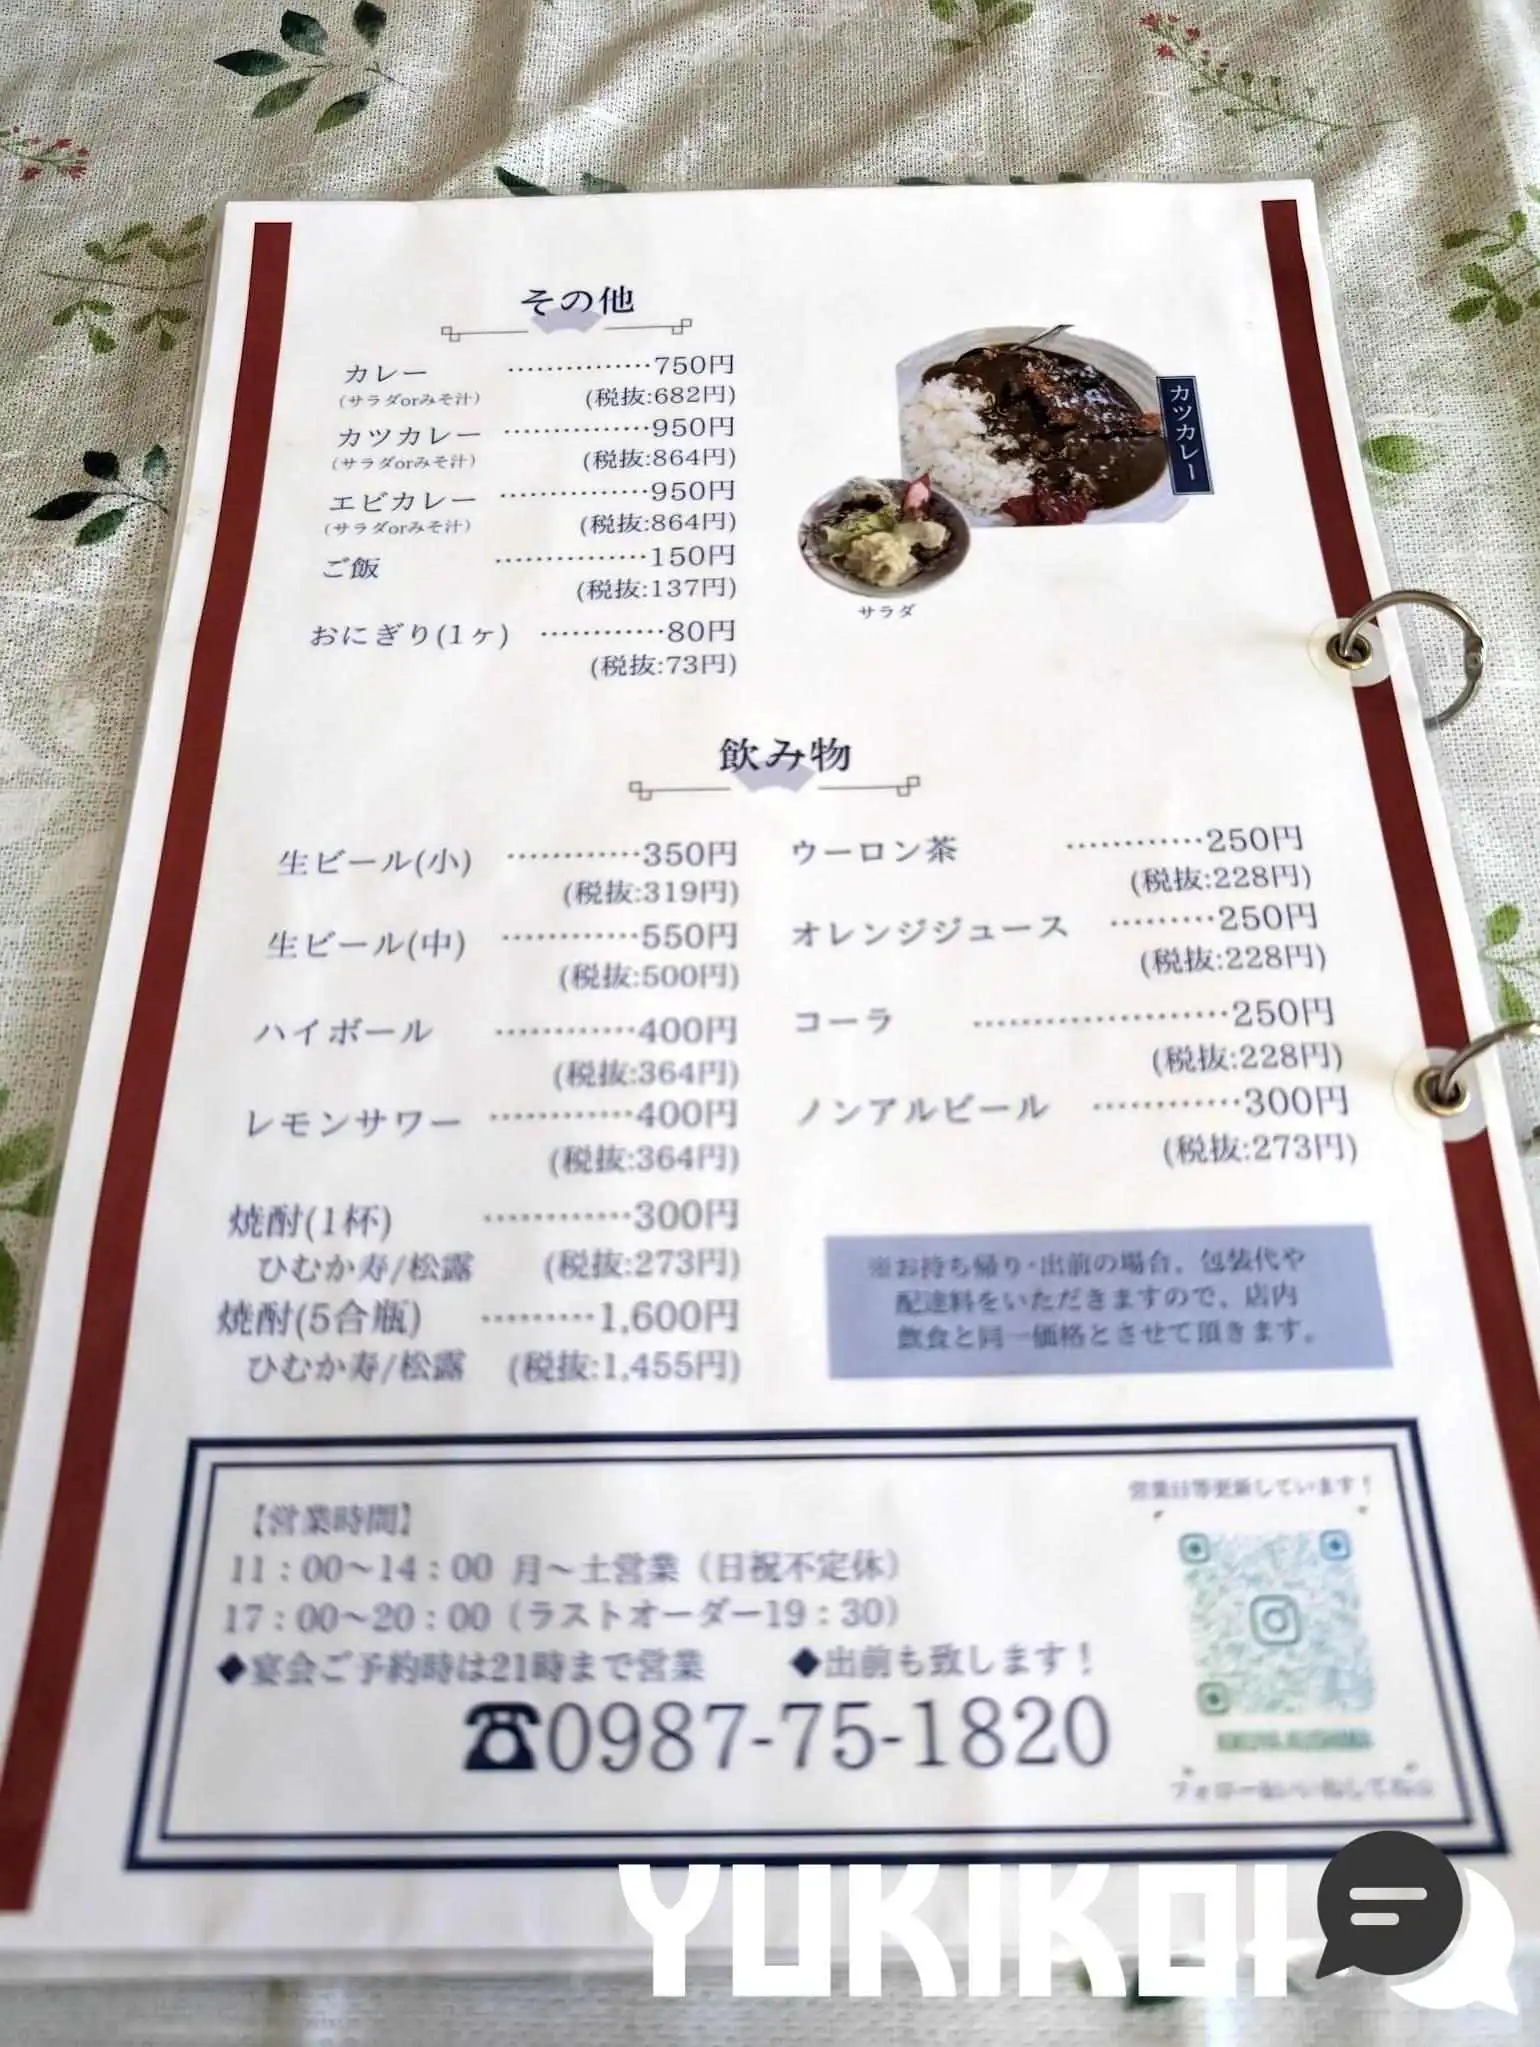 その他
カレー ……………750円
(サラダorみそ汁) (税抜:682円)
カツカレー ……………950円
(サラダorみそ汁) (税抜:864円)
エビカレー ……………950円
(サラダorみそ汁) (税抜:864円)
ご飯 ……………150円
(税抜:137円)
おにぎり(1ヶ) …………80円
(税抜:73円)
カツカレー
サラダ
飲み物
生ビール(小) …………350円
(税抜:319円)
生ビール(中) …………550円
(税抜:500円)
ハイボール …………400円
(税抜:364円)
レモンサワー …………400円
(税抜:364円)
焼酎(1杯) …………300円
ひむか寿/松露 (税抜:273円)
焼酎(5合瓶) ………1,600円
ひむか寿/松露 (税抜:1,455円)
ウーロン茶 …………250円
(税抜:228円)
オレンジジュース ………250円
(税抜:228円)
コーラ …………………250円
(税抜:228円)
ノンアルビール …………300円
(税抜:273円)
※お持ち帰り・出前の場合、包装代や
配達料をいただきますので、店内
飲食と同一価格とさせて頂きます。
【営業時間】
11：00〜14：00 月〜土営業（日祝不定休）
17：00〜20：00（ラストオーダー19：30）
◆宴会ご予約時は21時まで営業 ◆出前も致します！
☎0987-75-1820
営業日等更新しています！
YUKIKOI